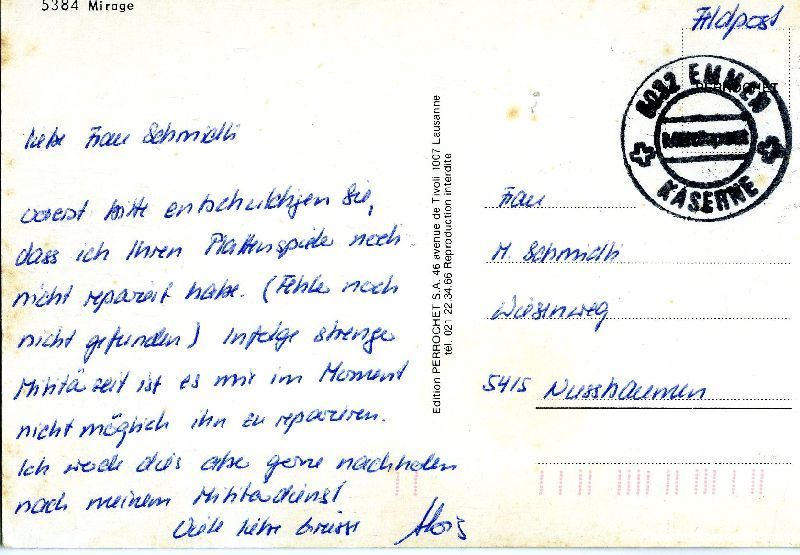 5384 Mirage
Liebe Frau Schmidli
vorerst bitte entschuldigen Sie,
dass ich Ihren Plattenspieler noch
nicht repariert habe. (Fehler noch
nicht gefunden) Infolge strenger
Militärzeit ist es mir im Moment
nicht möglich ihn zu reparieren.
Ich werde dies aber gerne nachholen
nach meinem Militärdienst
Viele liebe Grüsse Alois
Edition PERROCHET S.A. 46 avenue de Tivoli 1007 Lausanne
tél. 021 - 22.34.66 Reproduction interdite
Feldpost
PERROCHET
6032 EMMEN
Militärpost
KASERNE
Frau
M. Schmidli
Wiesenweg
5415 Nussbaumen